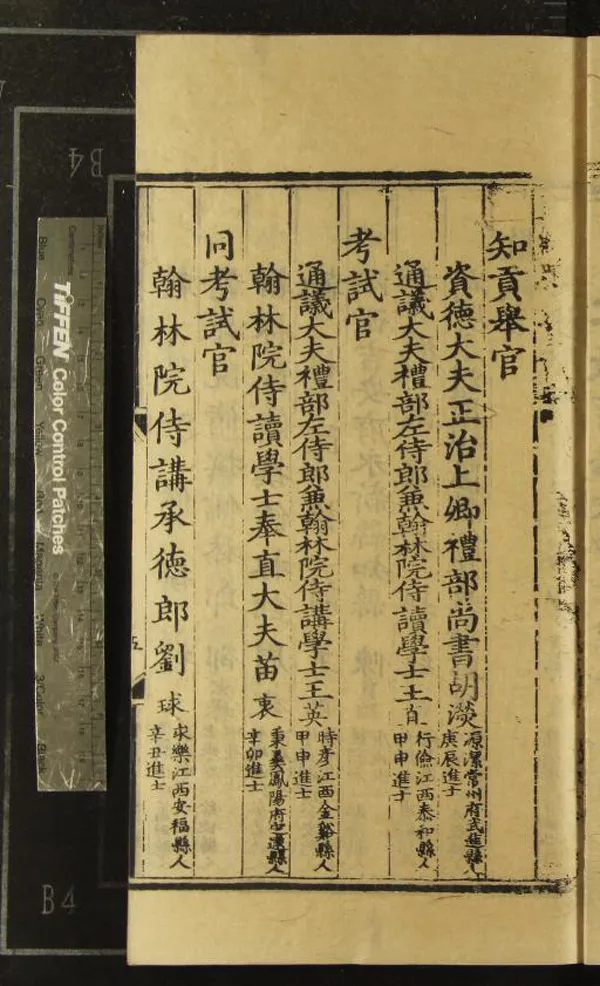 知貢舉官
資德大夫正治上卿禮部尚書胡濙
源潔常州府武進縣人
庚辰進士
通議大夫禮部左侍郎兼翰林院侍讀學士王直
行儉江西泰和縣人
甲申進士
考試官
通議大夫禮部左侍郎兼翰林院侍講學士王英
時彥江西金谿縣人
甲申進士
翰林院侍讀學士奉直大夫苗衷
秉彝鳳陽府定遠縣人
辛卯進士
同考試官
翰林院侍講承德郎劉球
求樂江西安福縣人
辛丑進士
五
TIFFEN Color Control Patches
Blue
Cyan
Green
B4
B4